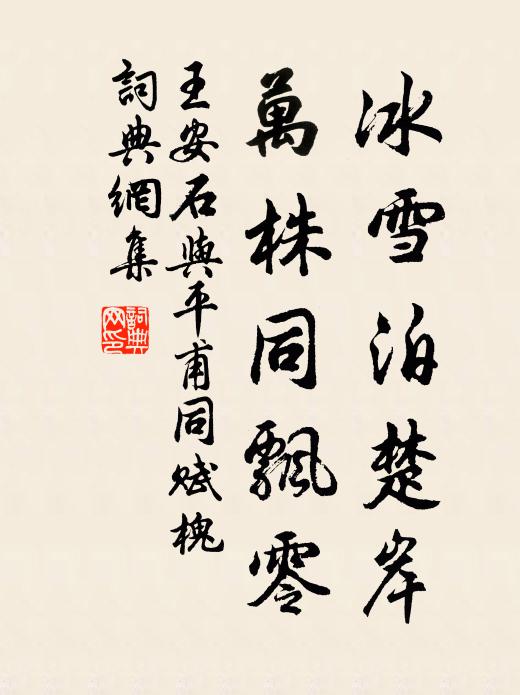 冰雪泊楚岸
萬株同飄零
王安石與平甫同賦槐
詞典網集
詞典網印